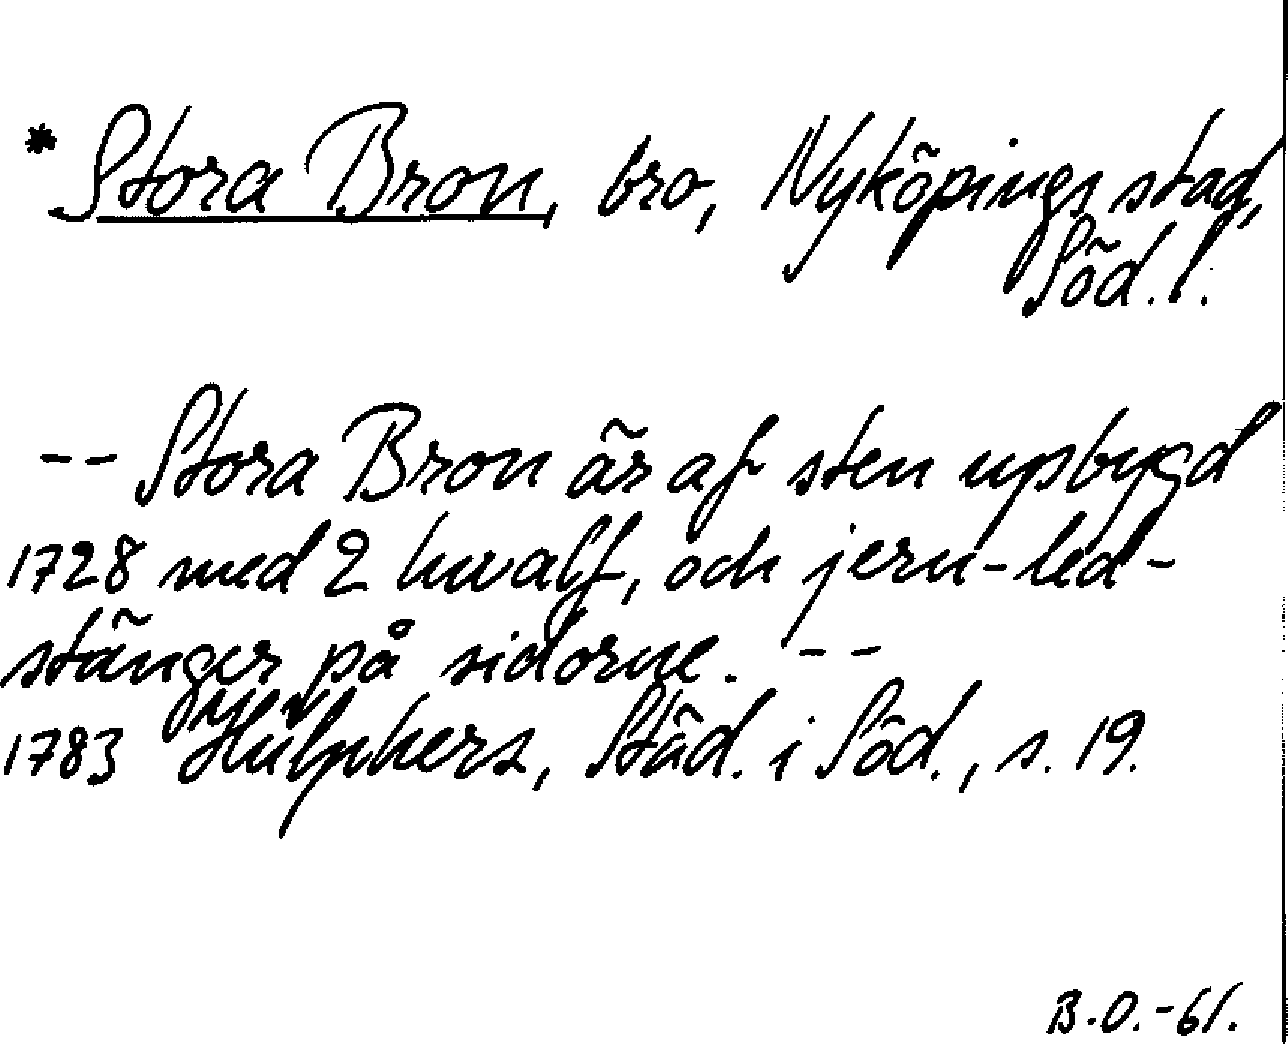 * Stora Bron, bro, Nyköpings stad,
Söd. l.
-- Stora Bron är af sten upbygd
1728 med 2 hwalf, och jern-led-
stänger på sidorne. --
1783 Hülphers, Städ. i Söd., s. 19.
B.O.-61.